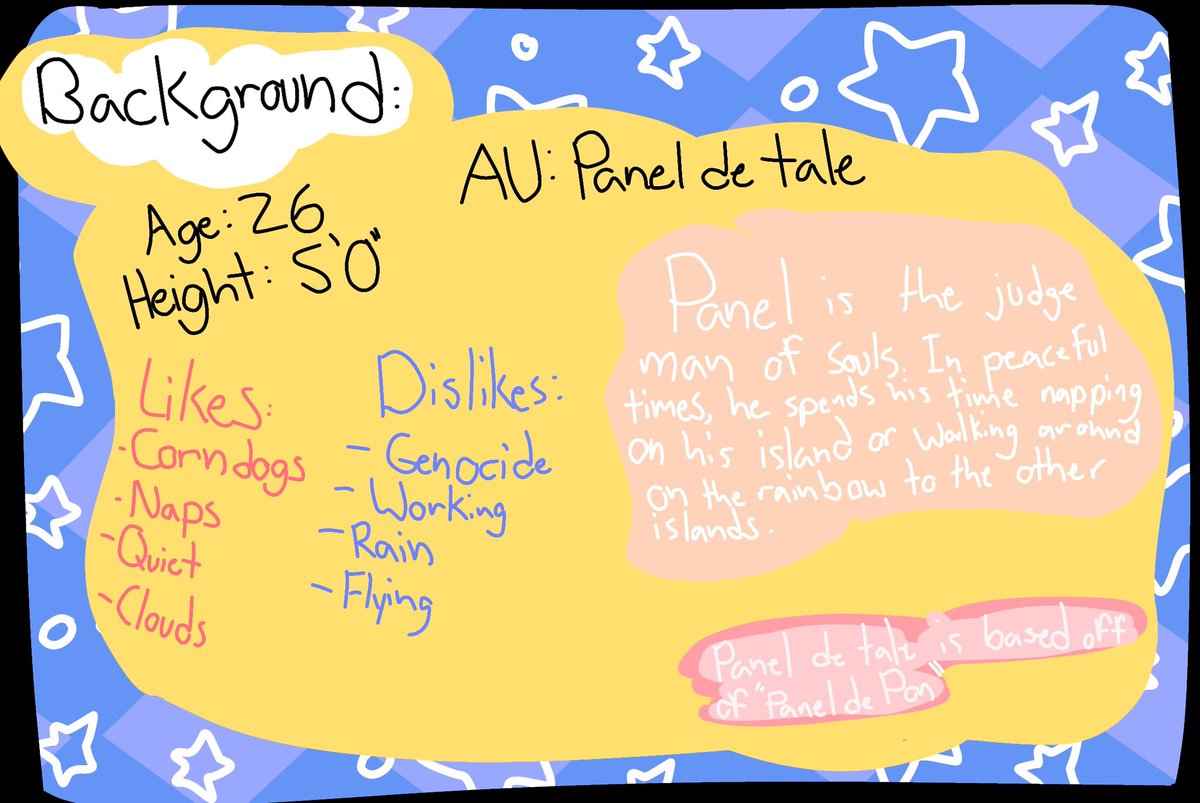 Background:
AU: Panel de tale
Age: 26
Height: 5'0"
Likes:
- Corndogs
- Naps
- Quiet
- Clouds
Dislikes:
- Genocide
- Working
- Rain
- Flying
Panel is the judge
man of souls. In peaceful
times, he spends his time napping
on his island or walking around
on the rainbow to the other
islands.
Panel de tale is based off
of "Panel de Pon"